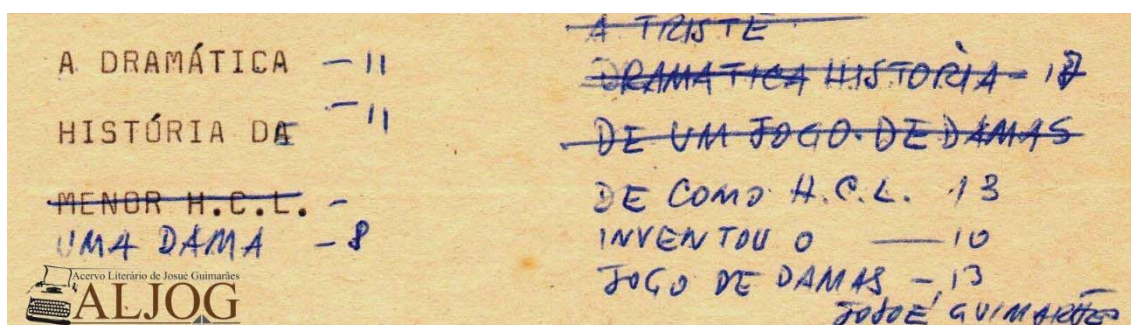 A DRAMÁTICA – 11
HISTÓRIA DE – 11
MENOR H.C.L. –
UMA DAMA – 8
Acervo Literário de Josué Guimarães
ALJOG
A TRISTE
DRAMATICA HISTORIA – 17
DE UM JOGO DE DAMAS
DE COMO H.C.L. 13
INVENTOU O — 10
JOGO DE DAMAS – 13
JOSUÉ GUIMARÃES